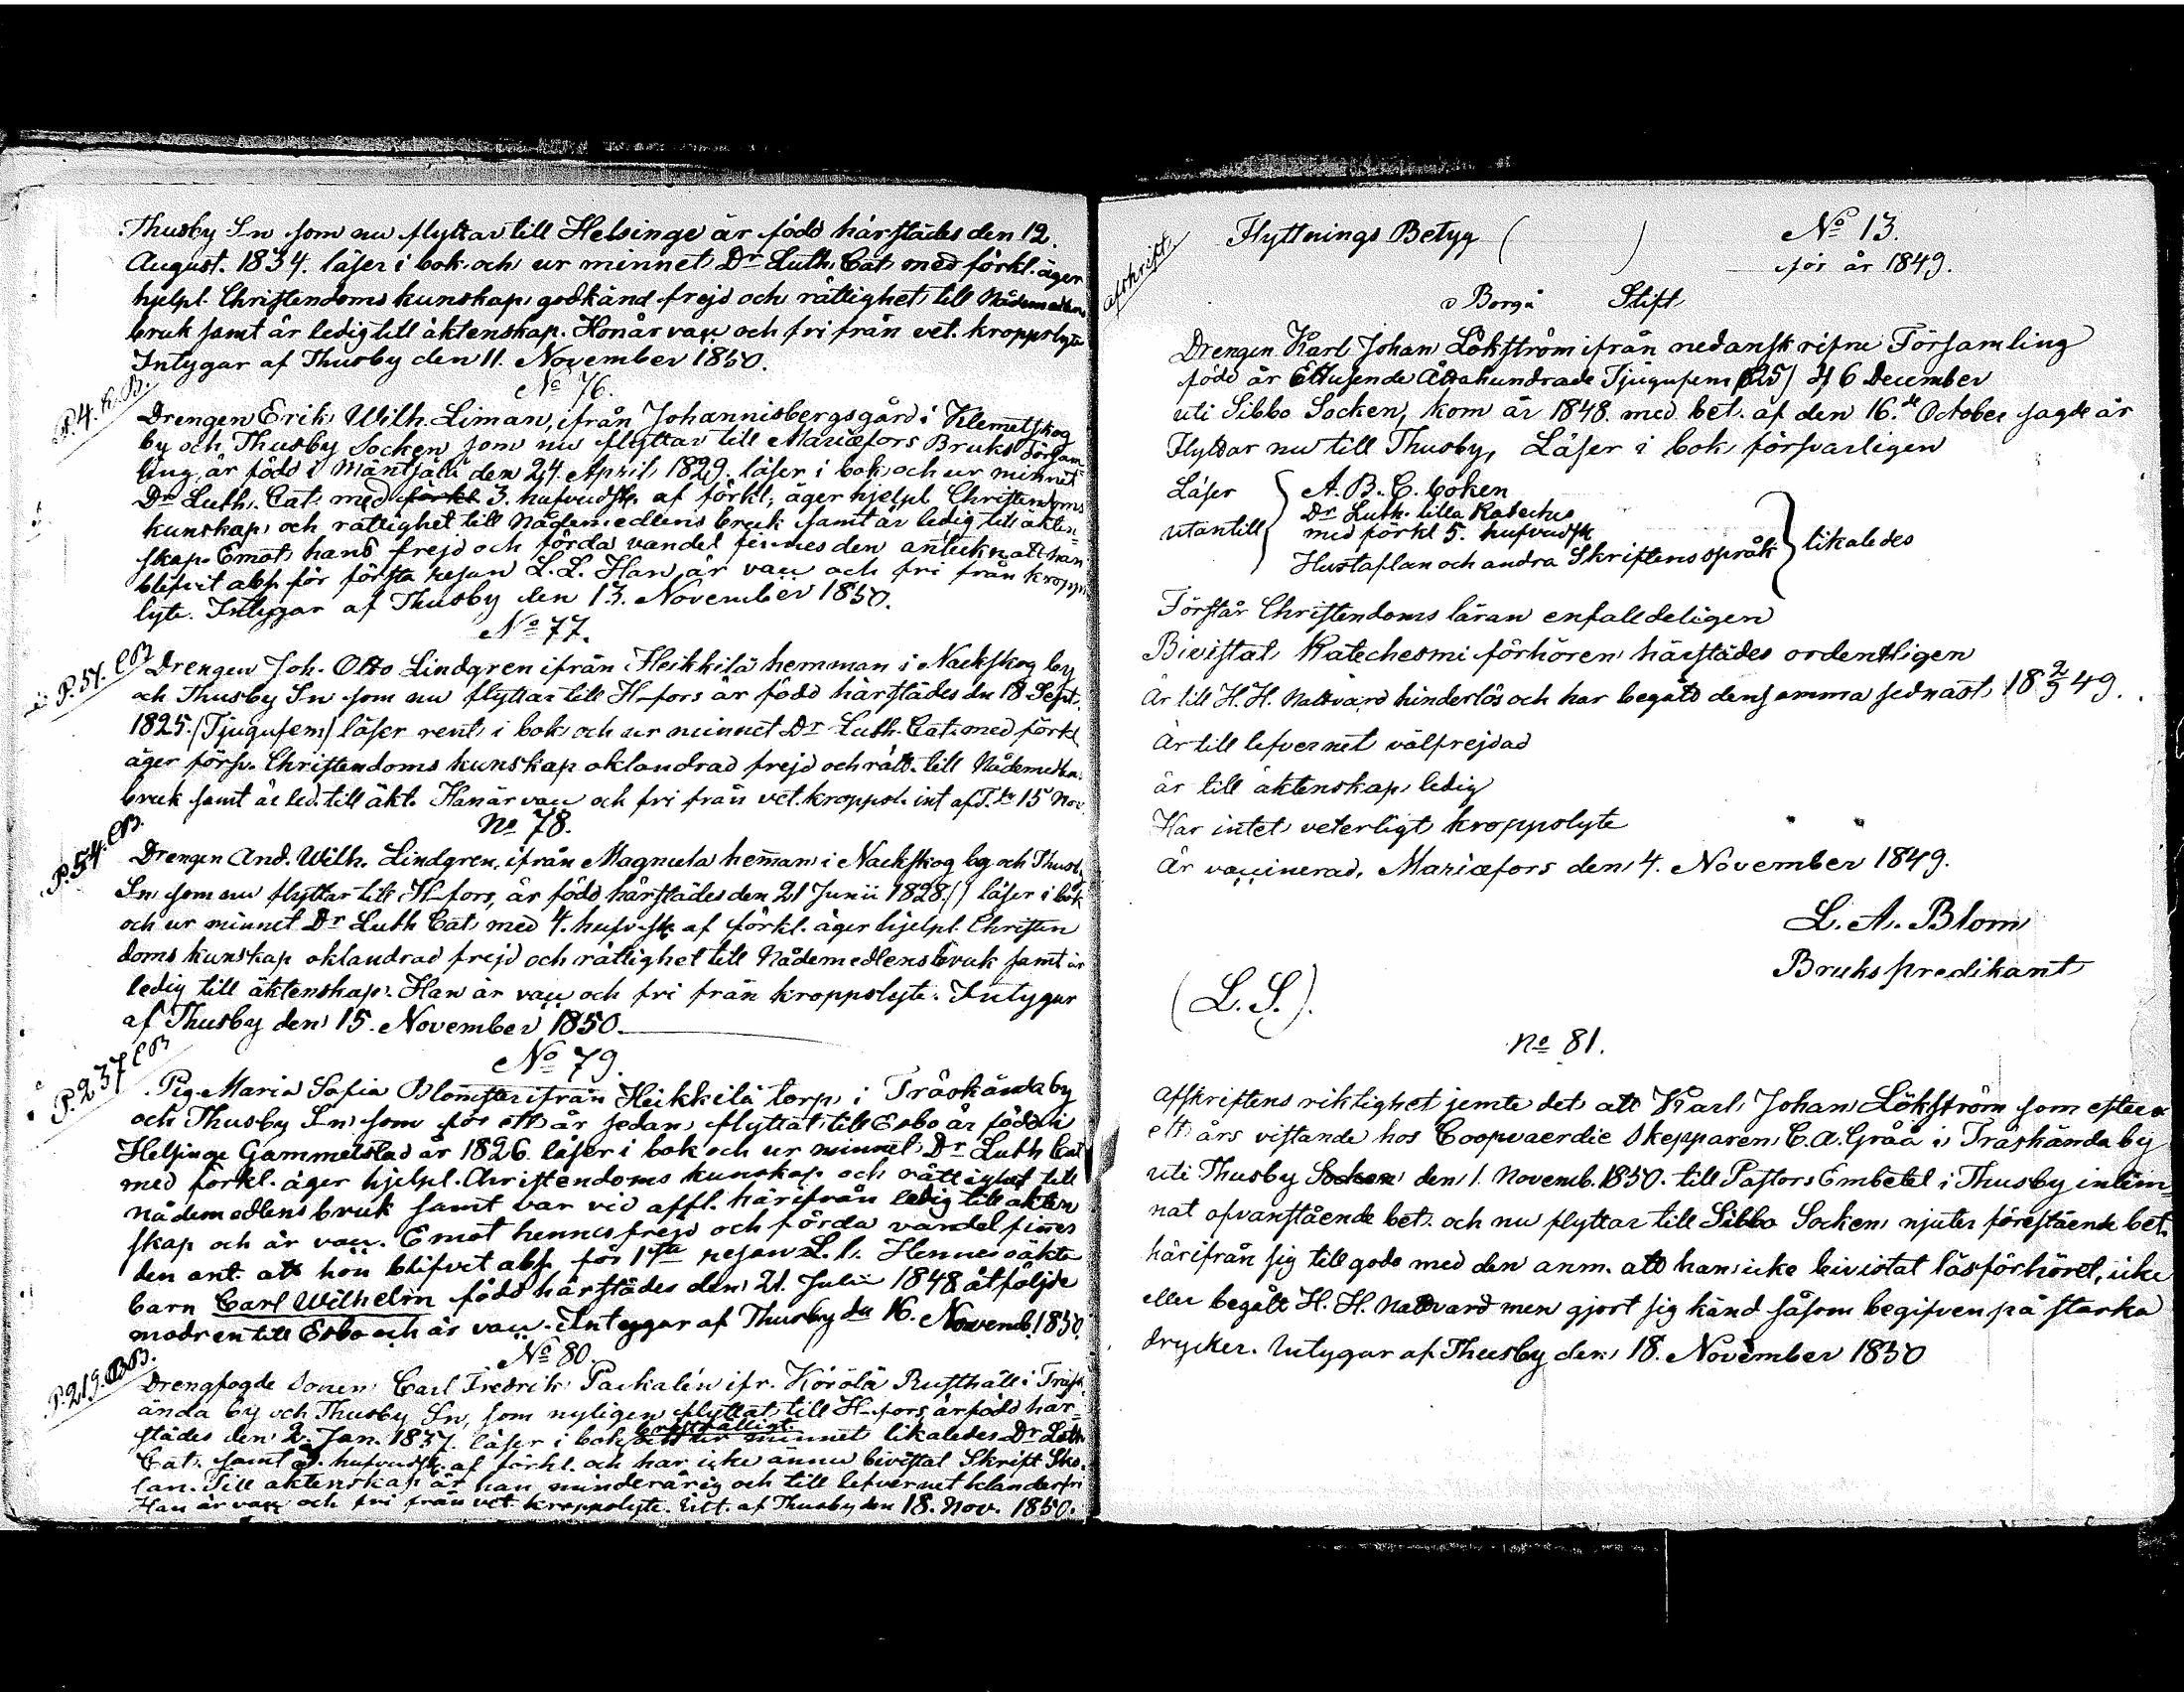 Thusby Sn som nu flyttar till Helsinge är född härstädes den 12.
August. 1834. läser i bok och ur minnet Dr Luth. Cat. med förkl. äger
hjelpl. Christendoms kunskap, godkänd frejd och rättighet till Nådemedlens
bruk samt är ledig till äktenskap. Hon är vacc och fri från vet. kroppslyte
Intygar af Thusby den 11. November 1850.
No 76.
P. 4. K.B.
Drengen Erik Wilh. Liman, ifrån Johannisbergsgård i Klemetskog
by och Thusby Socken som nu flyttar till Mariæfors Bruks Försam-
ling, är född i Mäntsälä den 24. April 1829. läser i bok och ur minnet
Dr Luth. Cat. med förkl. 3. hufvudst. af förkl., äger hjelpl. Christendoms
kunskap och rättighet till Nådemedlens bruk samt är ledig till äkten-
skap. Emot hans frejd och förda vandel finnes den anteckn att han
blifvit abs. för första resan L. L. Han är vacc och fri från kropps
lyte. Intygar af Thusby den 13. November 1850.
No 77.
P. 51.
Drengen Joh. Otto Lindgren ifrån Heikkilä hemman i Nackskog by
och Thusby Sn som nu flyttar till H-fors är född härstädes den 18 Sept.
1825. (Tjugufem) läser rent i bok och ur minnet Dr Luth. Cat. med förkl
äger försv. Christendoms kunskap oklandrad frejd och rätt. till Nådemedlens
bruk samt är led. till äkt. Han är vacc och fri från vet. kroppsl. int af T. d. 15 Nov.
No 78.
P. 54.
Drengen And. Wilh. Lindgren, ifrån Magnula hemman i Nackskog by och Thusby
Sn som nu flyttar till H-fors, är född härstädes den 21 Junii 1828. läser i bok
och ur minnet Dr Luth Cat. med 4. hufv.st. af förkl. äger hjelpl. Christen
doms kunskap oklandrad frejd och rättighet till Nådemedlens bruk samt är
ledig till äktenskap. Han är vacc och fri från kroppslyte. Intygar
af Thusby den 15. November 1850.
No 79.
P. 237
Pig. Maria Sofia Blomster ifrån Heikkilä torp i Träskända by
och Thusby Sn som för ett år sedan flyttat till Esbo är född i
Helsinge Gammelstad år 1826. läser i bok och ur minnet Dr Luth Cat
med förkl. äger hjelpl. Christendoms kunskap och rättighet till
Nådemedlens bruk samt var vid affl. härifrån ledig till äkten
skap och är vacc. Emot hennes frejd och förda vandel finnes
den ant. att hon blifvit abs. för 1sta resan L. l. Hennes oäkta
barn Carl Wilhelm född härstädes den 21. Julii 1848 åtföljde
modren till Esbo och är vacc. Intygar af Thusby den 16. Novemb. 1850.
No 80
P. 219.
Drengfogde Sonen Carl Fredrik Packalén ifr. Körölä Rusthåll i Träsk-
ända by och Thusby Sn, som nyligen flyttat till H-fors, är född här-
städes den 2. Jan. 1837. läser i bok ur minnet likaledes Dr Luth
Cat. samt hufvudst. af förkl. och har icke ännu bivistat Skrift Sko-
lan. Till äktenskap är han minderårig och till lefvernet klanderfri
Han är vacc och fri från vet. kroppslyte. Int. af Thusby den 18. Nov. 1850.
afskrift
Flyttnings Betyg ( )
No 13.
för år 1849.
Borgå Stift
Drengen Karl Johan Lökström ifrån nedanskrifne Församling
född år Ettusende Åttahundrade Tjugufem /25/ d 6 December
uti Sibbo Socken, kom år 1848. med bet. af den 16.de October sagde år
Flyttar nu till Thusby, Läser i bok försvarligen
Läser utantill
A. B. C. boken
Dr Luth. lilla Kateches
med förkl 5. hufvudst
Hustaflan och andra Skriftens språk } likaledes
Förstår Christendoms läran enfalldeligen
Bivistat Katechesmi förhören härstädes ordentligen
Är till H. H. Nattvard hinderlös och har begått densamma sednast 18 2/9 49.
Är till lefvernet välfrejdad
är till äktenskap ledig
Har intet veterligt kroppslyte
Är vaccinerad. Mariæfors den 4. November 1849.
L. A. Blom
Brukspredikant
(L. S.).
No 81.
Afskriftens riktighet jemte det att Karl Johan Lökström som efter
ett års vistande hos Coopvaerdie Skepparen C. A. Gråå i Träskända by
uti Thusby Socken den 1. Novemb. 1850. till Pastors Embetet i Thusby inlem-
nat ofvanstående bet. och nu flyttar till Sibbo Socken njuter förestående bet.
härifrån sig till godo med den anm. att han icke bivistat läsförhöret, icke
eller begått H. H. Nattvard men gjort sig känd såsom begifven på starka
drycker. Intygar af Thusby den 18. November 1850